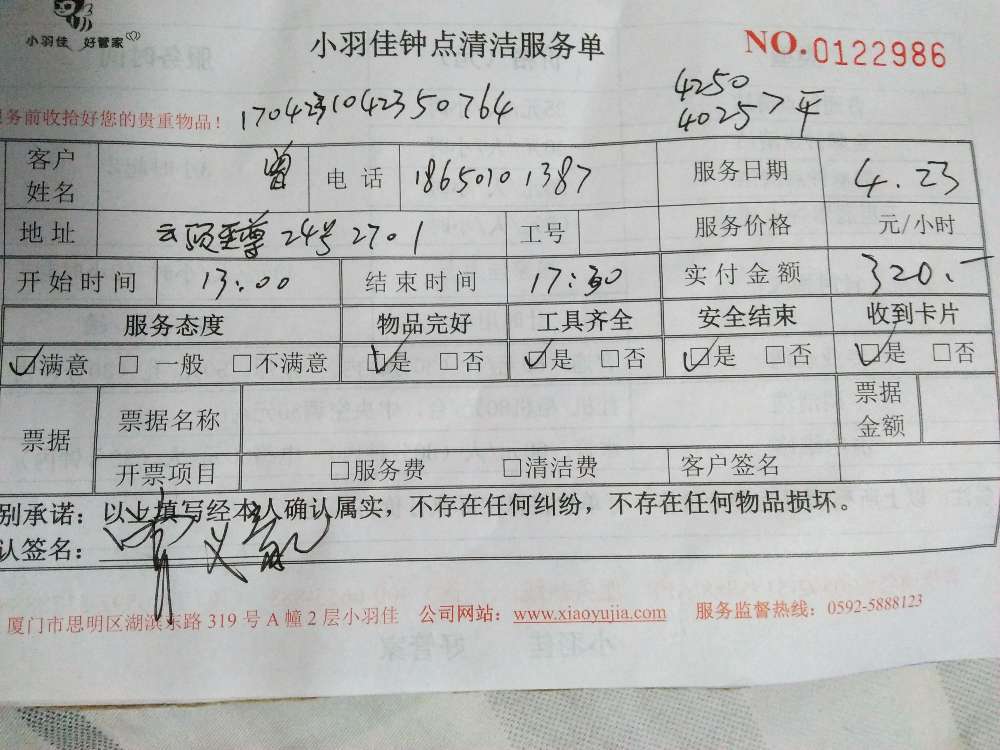 小羽佳 好管家
小羽佳钟点清洁服务单
NO.0122986
务前收拾好您的贵重物品！
1704231042350764
4250
4025 > 平
客户姓名 曾 电话 18650701387 服务日期 4.23
地址 云顶至尊24号2701 工号 服务价格 元/小时
开始时间 13:00 结束时间 17:30 实付金额 320.-
服务态度 物品完好 工具齐全 安全结束 收到卡片
☑满意 □一般 □不满意 ☑是 □否 ☑是 □否 ☑是 □否 ☑是 □否
票据 票据名称 票据金额
开票项目 □服务费 □清洁费 客户签名
别承诺：以上填写经本人确认属实，不存在任何纠纷，不存在任何物品损坏。
认签名：
厦门市思明区湖滨东路319号A幢2层小羽佳 公司网站：www.xiaoyujia.com 服务监督热线：0592-5888123